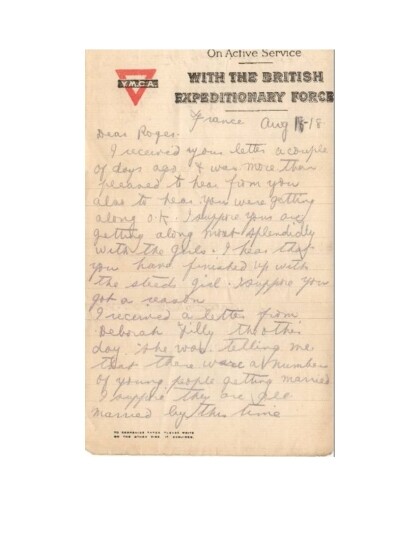 On Active Service
Y.M.C.A.
WITH THE BRITISH
EXPEDITIONARY FORCE
France Aug 18-18
Dear Roger.
I received your letter a couple
of days ago, & was more than
pleased to hear from you
also to hear you were getting
along O.K. I suppose you are
getting along most splendidly
with the girls. I hear that
you have finished up with
the steeds girl. I suppose you
got a reason
I received a letter from
Deborah Tilly the other
day. She was telling me
that there were a number
of young people getting married
I suppose they are all
married by this time
TO ECONOMISE PAPER PLEASE WRITE
ON THE OTHER SIDE, IF REQUIRED.